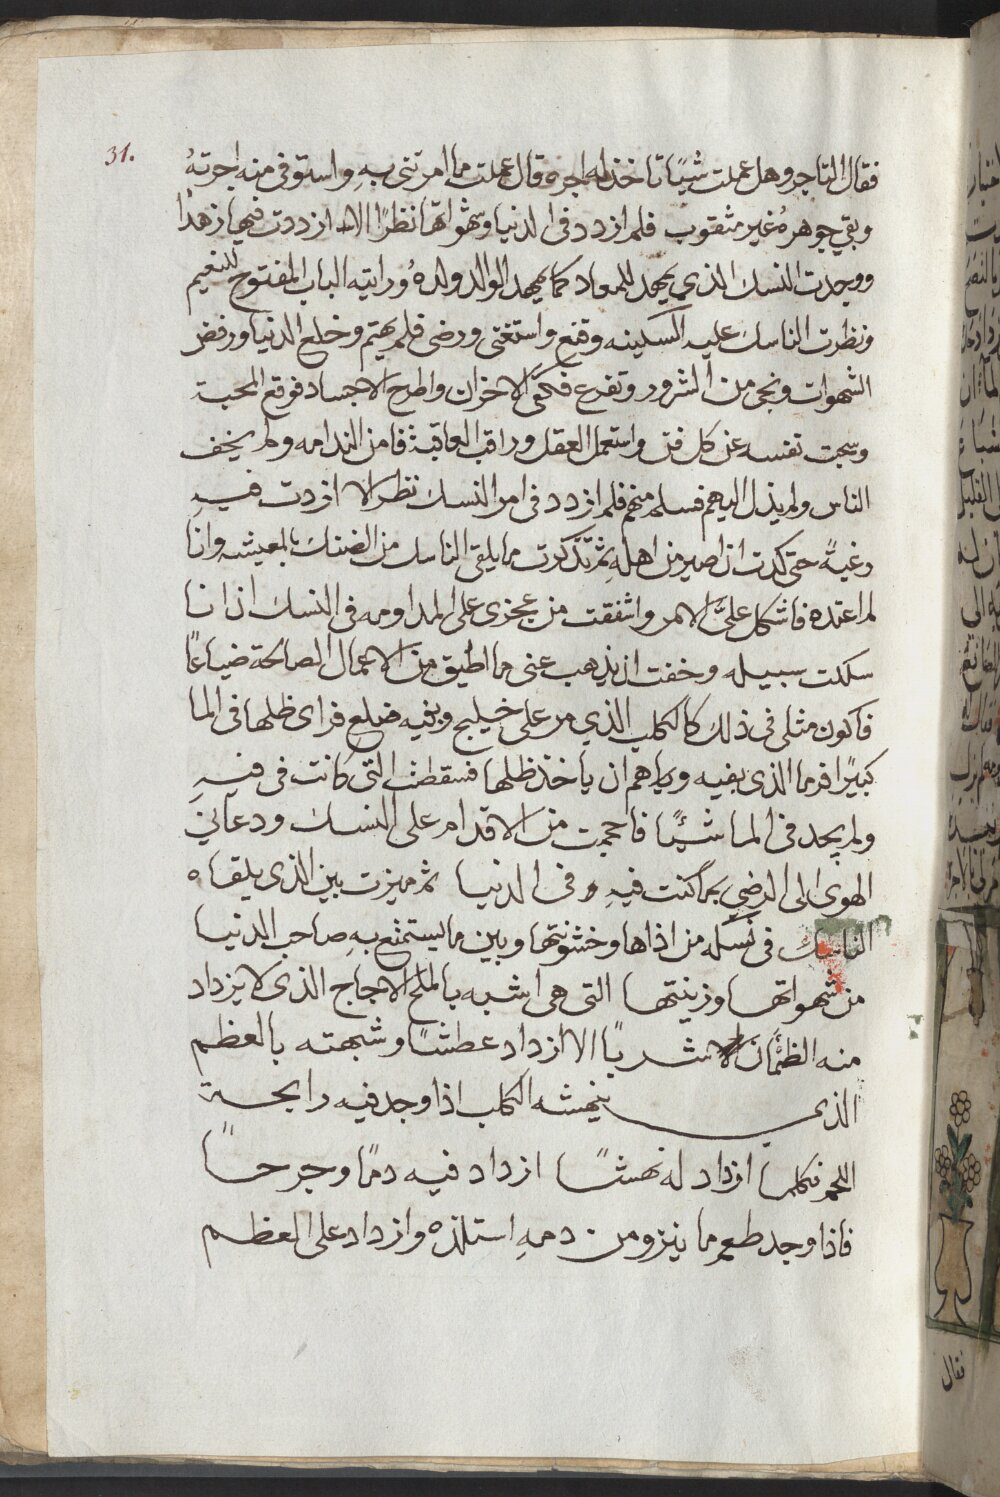 31.
فقال التاجر وهل عملت شيًا تاخذ له اجره قال عملت ما امرتني به واستوفى منه اجرتهُ
وبقي جوهرهُ غير مثقوب فلم ازدد في الدنيا وشهواتها نظرًا الا ازددت فيها زهدًا
ووجدت النسك الذي يمهد للمعاد كما يمهد الوالد ولدهُ ورايته الباب المفتوح للنعيم
ونظرت الناسك عليه السكينه وقنع واستغنى ورضى فلم يهتم وخلع الدنيا ورفض
الشهوات ونجى من الشرور وتفرع فكفى الاحزان واطرح الاجساد فوقع المحبة
وسجت نفسه عن كل فن واستعمل العقل وراقب العاقبة فامن الندامه ولم يخف
الناس ولم يذل اليهم فسلم منهم فلم ازدد في امر النسك نظر الا ازددت فيهِ
رغبةً حتى كدت ان اصير من اهله ثم تذكرت ما يلقى الناسك من الضنك بالمعيشه وانا
لم اعتده فاشكل عليَّ الامر واشفقت من عجزى على المداومه في النسك ان انا
سلكت سبيله وخفت ان يذهب عنى ما اطيق من الاعمال الصالحة ضياعًا
فاكون مثلى في ذلك كالكلب الذي مر على خليج وبفيه ضلع فراى ظلها في الما
كبيرًا فرما الذي بفيه وياهم ان ياخذ ظلها فسقطت التى كانت في فيهِ
ولم يجد في الما شيًا فاحجمت من الاقدام على النسك ودعاني
الهوى الى الرضي بما كنت فيهِ وفى الدنيا ثم ميزت بين الذى يلقاه
الناسك في نسكه من اذاها وخشونتها وبين ما يستمتع به صاحب الدنيا
من شهواتها وزينتها التى هى اشبه بالملح الاجاج الذى لا يزداد
منه الظمآن شربًا الا ازداد عطشًا وشبهته بالعظم
الذي ينهشه الكلب اذا وجد فيه رايحة
اللحم فكلما ازداد له نهشًا ازداد فيه دمًا وجرحًا
فاذا وجد طعم ما ينزو من دمهِ استلذه وازداد على العظم
فقال